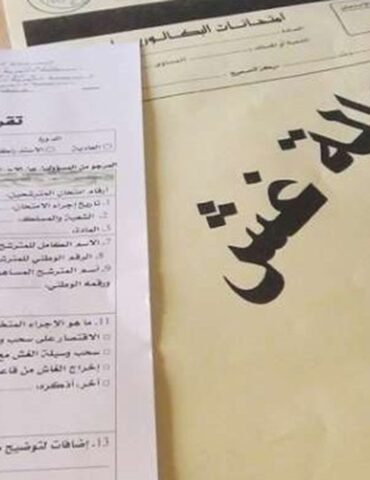 امتحانات البكالوريا
المادة:
الشعبة أو المسلك:
المستوى:
مركز التصحيح
لة غش
تقر
الدورة
العادية
المرجو من المسؤول
أرقام امتحان المترشحين
1. تاريخ إجراء الامتحان.
2. الشعبة والمسلك.
3. المادة.
7. الاسم الكامل للمترشح
8. الرقم الوطني للمترش
9. اسم المترشح المساهم
ورقمه الوطني.
11. ما هو الإجراء المتخ
الاقتصار على سحب و
سحب وسيلة الغش مع
إخراج الغاش من قاعة
آخر، أذكره.
13. إضافات لتوضيح